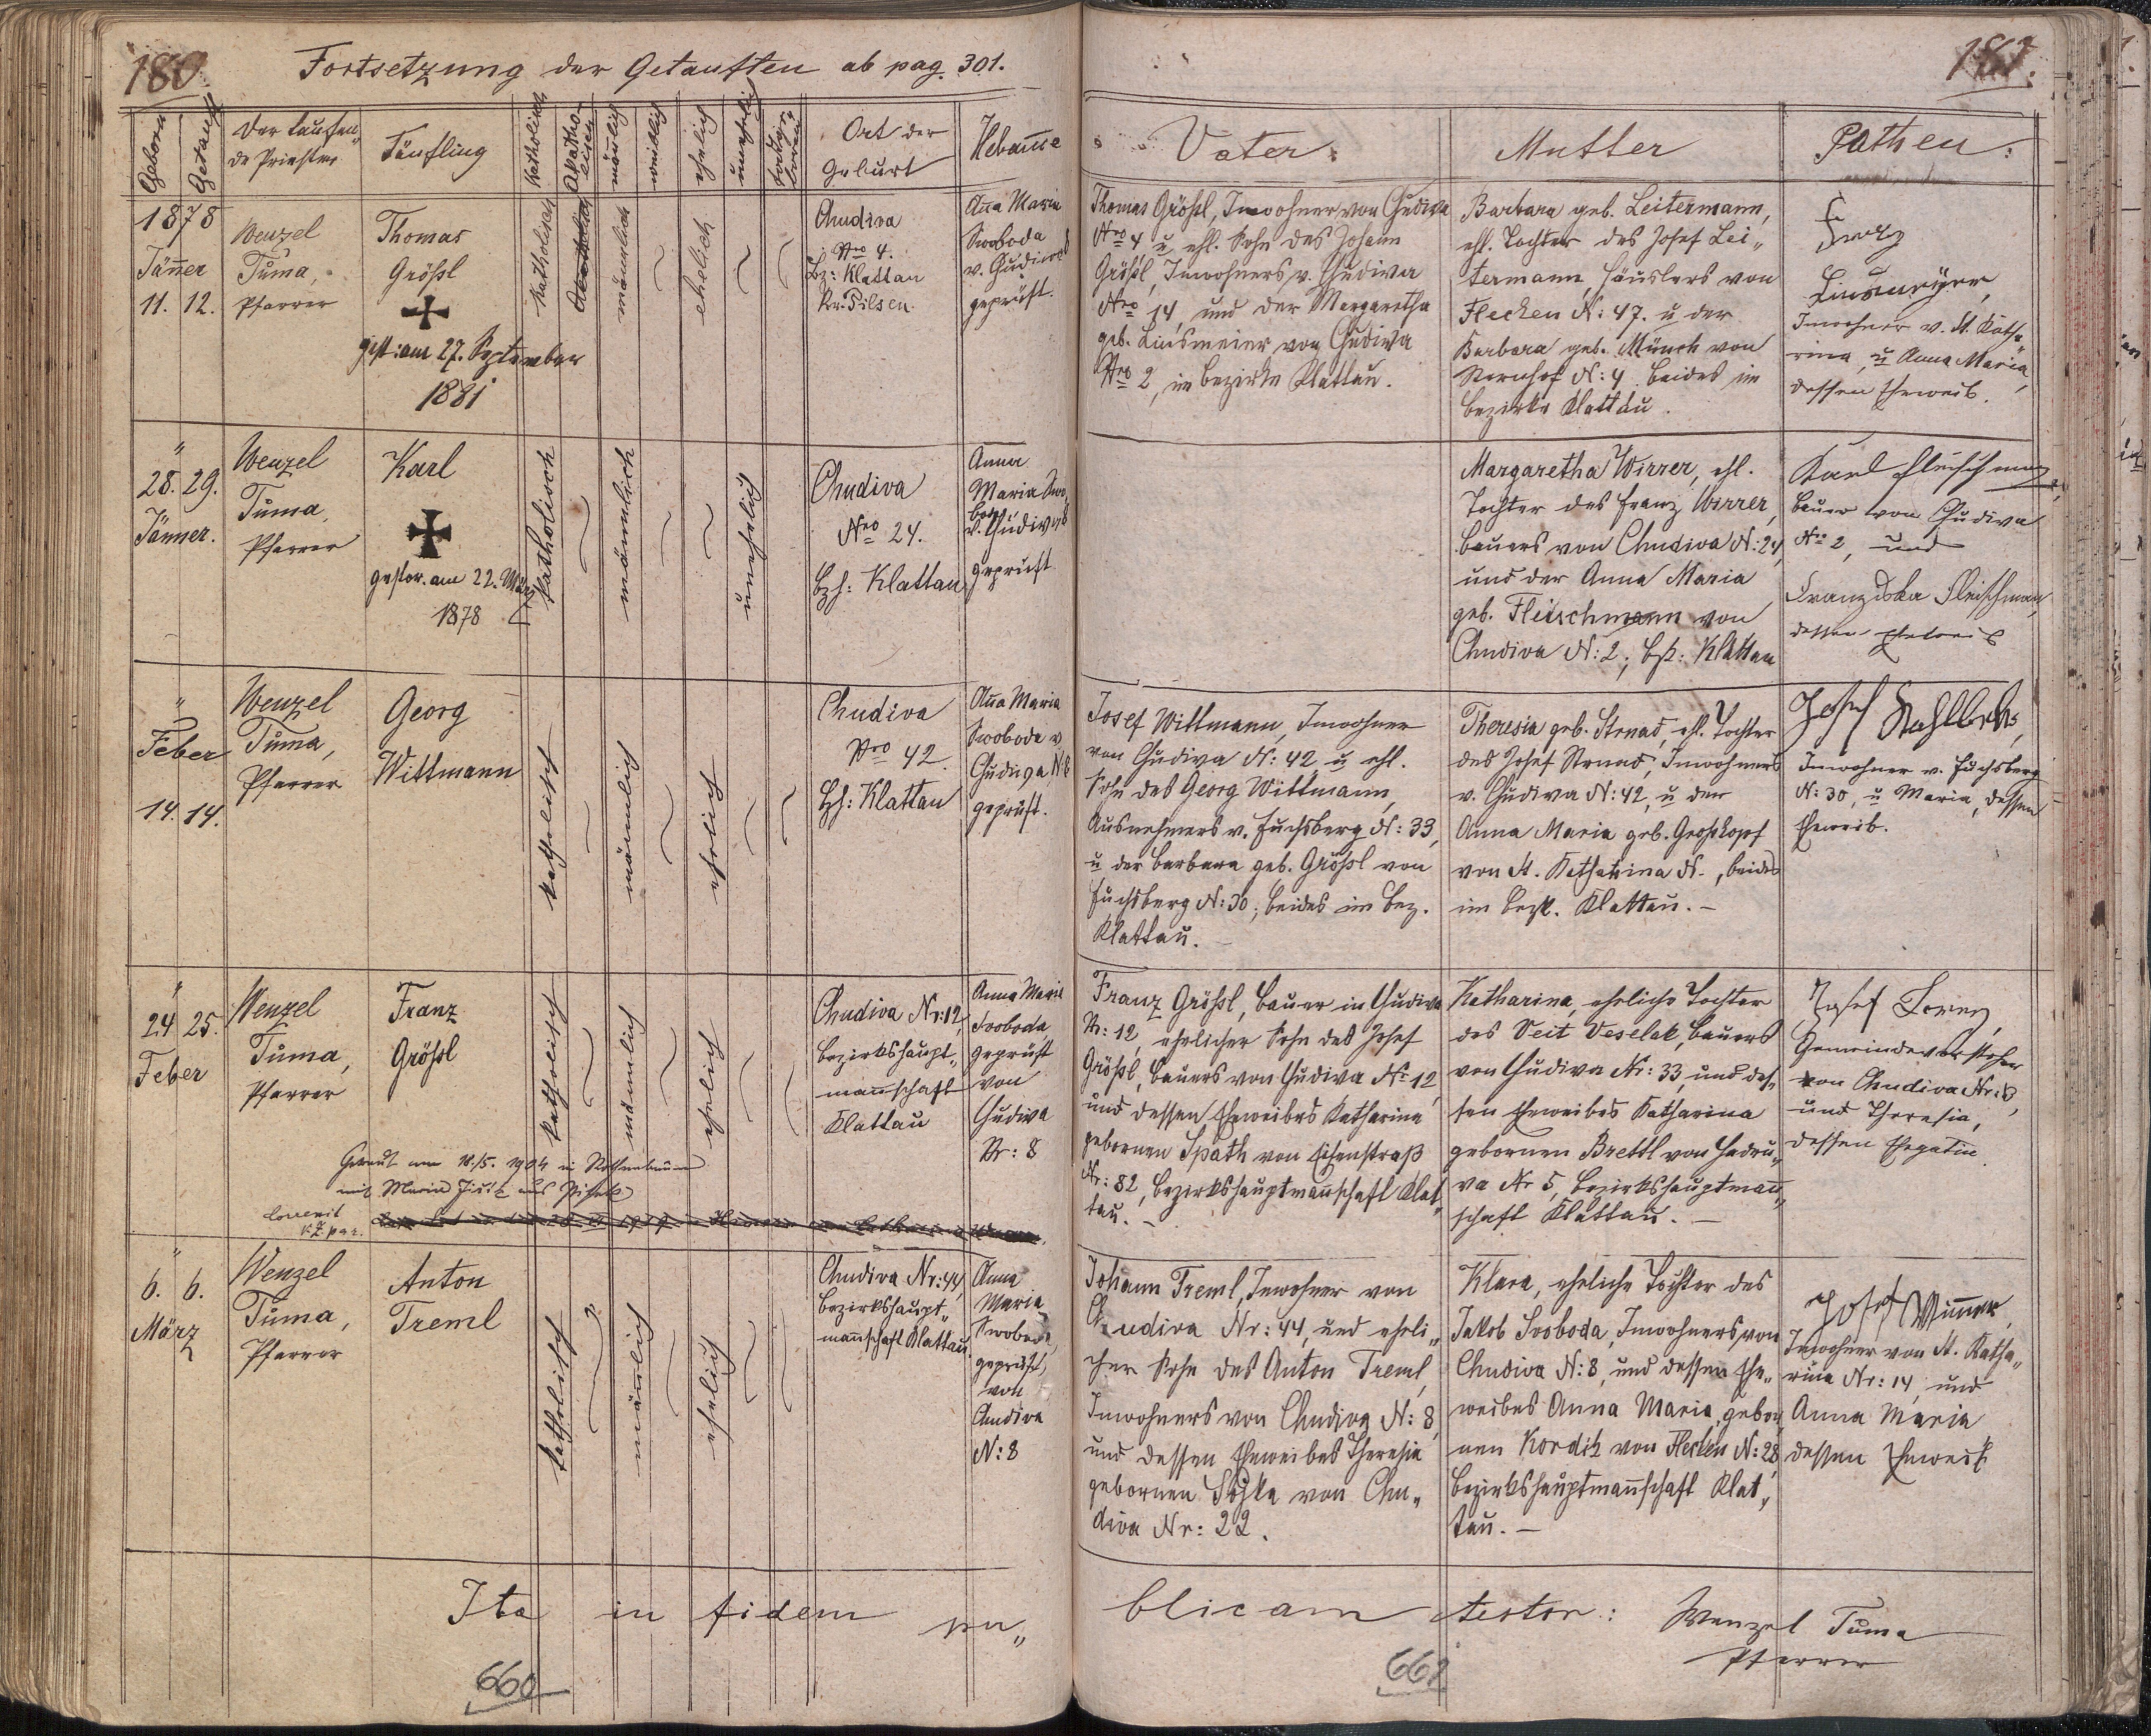 180.
Fortsetzung der Getauften ab pag. 301.
Geborn
Getauft
Der taufen„
de Priester
Täufling
Katholisch
Akatho-
lisch
mänlich
weiblich
ehelich
unehelich
Ort der
Geburt
Hebam̅e
1878
Jän̅er
11. 12.
Wenzel
Tůma,
Pfarrer
Thomas
Größl
gest: am 27. September
1881
Katholisch
männlich
ehelich
Chudiva
Nro 4.
Bz: Klattau
Kr. Pilsen.
An̅a Maria
Swoboda
v. Chudiwa
geprüft.
"
28. 29.
Jänner.
Wenzel
Tůma,
Pfarrer
Karl
gestor. am 22. März
1878
Katholisch
männlich
unehelich
Chudiva
Nro 24.
Bzh: Klattau
Anna
Maria Swo„
boda
v. Chudiwa
geprüft
"
Feber
14. 14.
Wenzel
Tůma,
Pfarrer
Georg
Wittmann
katholisch
männlich
ehelich
Chudiva
Nro 42.
Bzh: Klattau
An̅a Maria
Swoboda v.
Chudiva N. 8
geprüft.
"
24 25.
Feber
Wenzel
Tůma,
Pfarrer
Franz
Größl
katholisch
männlich
ehelich
Chudiva Nr: 12
Bezirkshaupt„
man̅schaft
Klattau
Anna Marie
Svoboda
geprüft
von
Chudiva
Nr: 8
Getraut am 18./5. 1904 in Rothenbaum
mit Maria
"
6. 6.
März
Wenzel
Tůma,
Pfarrer
Anton
Treml
katholisch
män̅lich
ehelich
Chudiva Nr: 44,
Bezirkshaupt„
man̅schaft Klattau.
Anna
Maria
Swoboda,
geprüft,
von
Chudiva
N: 8
Ita in fidem pu„
660
Vater:
Mutter
Pathen:
Thomas Größl, Inwohner von Chudiva
Nro 4 u̅ ehl. Sohn des Johann
Größl, Inwohners v. Chudiwa
Nro 14, und der Margaretha
geb. Linsmeier von Chudiwa
Nro 2, im Bezirke Klattau.
Barbara geb. Leitermann,
ehl. Tochter des Josef Lei„
termann, Häuslers von
Flecken N: 47. u̅ der
Barbara geb. Münch von
Sternhof N: 4. beides im
Bezirke Klattau.
Linsmeyer,
Inwohner v. St. Katha„
rina, u̅ Anna Maria,
dessen Eheweib.
Margaretha Wirrer, ehl.
Tochter des Franz Wirrer,
Bauers von Chudiva N: 24,
und der Anna Maria
geb. Fleischmann von
Chudiva N: 2; Bzk: Klattau
Karl Fleischmann,
Bauer von Chudiva
Nro 2, und
Franziska Fleischman,
dessen Eheweib
Josef Wittmann, Inwohner
von Chudiva N: 42 u̅ ehl.
Sohn des Georg Wittmann,
Ausnehmers v. Fuchsberg N: 33,
u̅ der Barbara geb. Größl von
Fuchsberg N: 30; beides im Bez.
Klattau.
Theresia geb. Strnad, ehl. Tochter
des Josef Strnad, Inwohners
v. Chudiva N: 42, u̅ der
Anna Maria geb. Großkopf
von St. Katharina N. , beides
im Bezk. Klattau. –
Josef
Inwohner v. Fuchsberg
N: 30, u̅ Maria, dessen
Eheweib.
Franz Größl, Bauer in Chudiva
Nr: 12, ehelicher Sohn des Josef
Größl, Bauers von Chudiva Nr 12
und dessen Eheweibes Katharina
gebornen Späth von Eisenstraß
Nr: 82, Bezirkshauptman̅schaft Klat„
tau. –
Katharina, eheliche Tochter
des Veit Veselak, Bauers
von Chudiva Nr: 33, und des„
sen Eheweibes Katharina
gebornen Brettl von Hadru„
va Nr 5, Bezirkshauptman̅„
schaft Klattau. –
Josef Lorenz,
Gemeindevorsteher
von Chudiva Nr: 8,
und Theresia,
dessen Ehegatin.
Johann Treml, Inwohner von
Chudiva Nr: 44, und eheli„
cher Sohn des Anton Treml,
Inwohners von Chudiva N: 8,
und dessen Eheweibes Theresia
gebornen Sojka von Chu„
diva Nr: 22.
Klara, eheliche Tochter des
Jakob Svoboda, Inwohners von
Chudiva N: 8, und dessen Ehe„
weibes Anna Maria, gebor„
nen Kordik von Flecken N: 28,
Bezirkshauptman̅schaft Klat„
tau. –
Josef Wim̅er,
Inwohner von St. Katha„
rina Nr: 14, und
Anna Maria
dessen Eheweib
blicam testor: Wenzel Tůma
Pfarrer